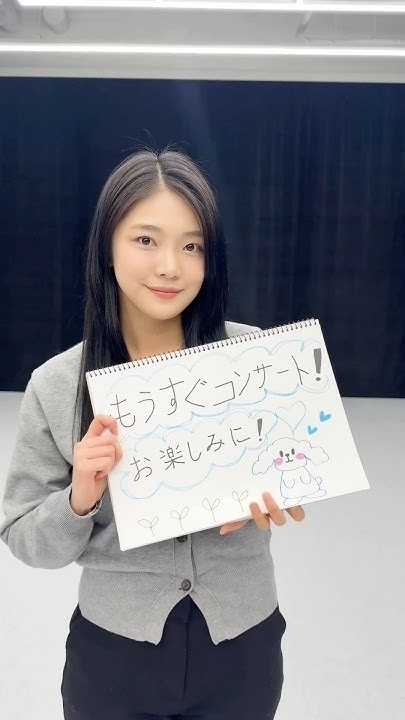 もうすぐコンサート!
お楽しみに!